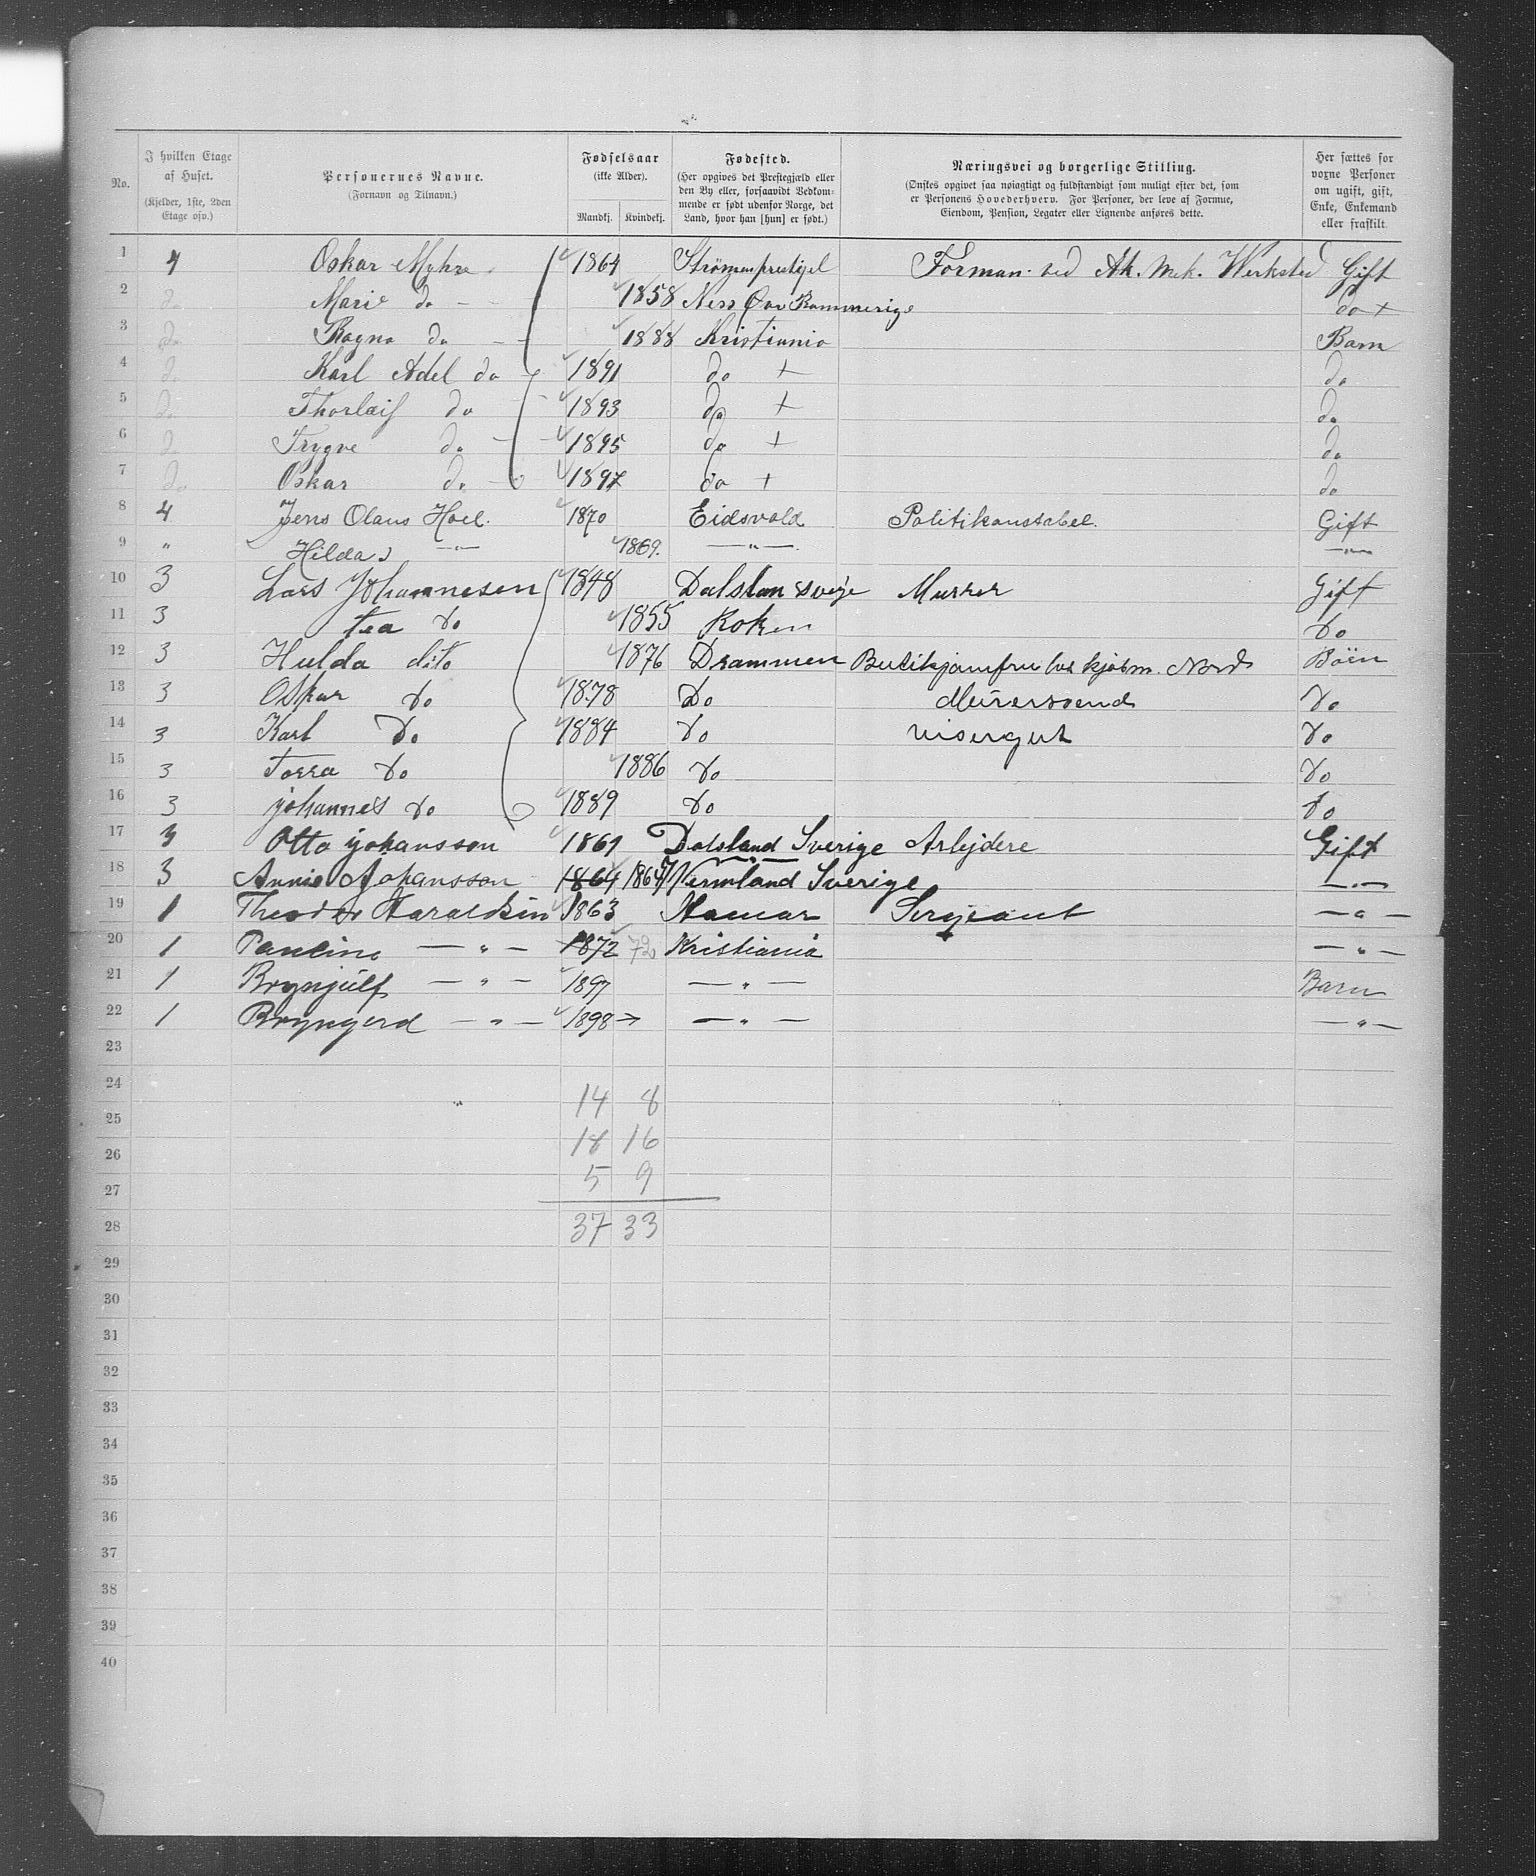 No. I hvilken Etage af Huset. (Kjelder, 1ste, 2den Etage osv.) Personernes Navne. (Fornavn og Tilnavn.) Fødselsaar (ikke Alder). Mandkj. Kvindekj. Fødested. (Her opgives det Prestegjæld eller den By eller, forsaavidt Vedkommende er født udenfor Norge, det Land, hvor han [hun] er født.) Næringsvei og borgerlige Stilling. (Ønskes opgivet saa nøiagtigt og fuldstændigt som muligt efter det, som er Personens Hovederhverv. For Personer, der leve af Formue, Eiendom, Pension, Legater eller Lignende anføres dette. Her sættes for voxne Personer om ugift, gift, Enke, Enkemand eller fraskilt.
1 4 Oskar Myhre 1864 Strømmen prestigel Forman ved Ak. Mek. Werksted Gift
2 do Marie do - - 1858 Ness Øvr Rommerige do +
3 do Ragna do - - 1888 Kristiania Barn
4 do Karl Adel do 1891 do + do
5 do Thorleif do - 1893 do + do
6 do Trygve do - 1895 do + do
7 do Oskar do - 1897 do + do
8 4 Jens Olaus Hoel. 1870 Eidsvold Politikonstabel. Gift
9 " Hilda —"— 1869. —"—. —"—
10 3 Lars Johannesen 1848 Dalslan sverje Murer Gift
11 3 tea do 1855 Roken do
12 3 Hulda dito 1876 Drammen Butikjomfru hos kjøbm. Nord Böen
13 3 Oskar do 1878 Do Murersvend do
14 3 Karl do 1884 do visergut do
15 3 Torra do 1886 do do
16 3 johannes do 1889 do do
17 3 Otto johansson 1861 Dalsland Sverige Arbejdere Gift
18 3 Annie Johansson 1864 1864 Vermland Sverige —"—
19 1 Theodor Haraldsen 1863 Hamar Sergeant —"—
20 1 Pauline —"— 1872 72 Kristiania —"—
21 1 Brynjulf —"— 1897 —"— Barn
22 1 Bryngerd —"— 1898 → —"— —"—
23
24 14 8
25 18 16
26
27 5 9
28 37 33
29
30
31
32
33
34
35
36
37
38
39
40